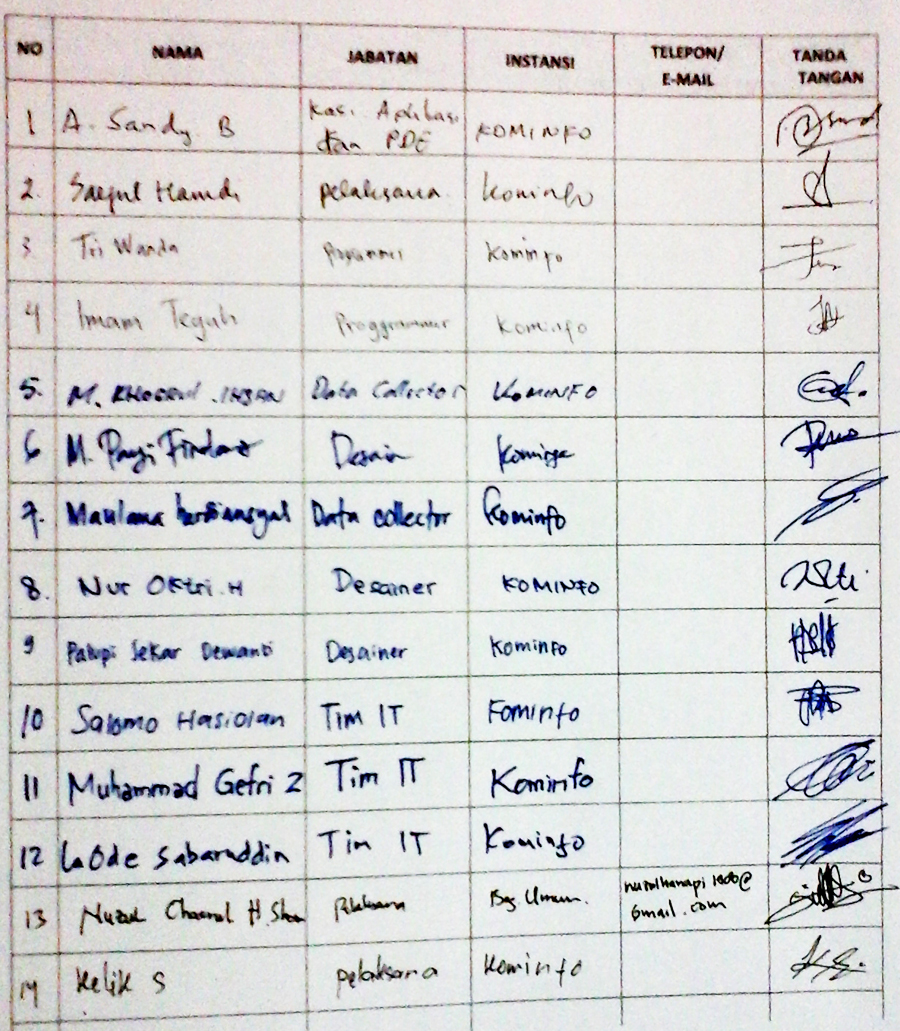 NO NAMA JABATAN INSTANSI TELEPON/ E-MAIL TANDA TANGAN
1 A. Sandy. B Kasi Aplikasi dan PDE KOMINFO
2. Saeful Hamdi pelaksana. Kominfo
3 Tri Wanda Kominfo
4 Imam Teguh Proggrammer Kominfo
5. M. KHOERUL .IHSAN Data Collector KOMINFO
6 M. Desain
7. Maulana Data collector Kominfo
8. Nur Oktri.H Desainer KOMINFO
9 Patupi Sekar Dewanti Desainer Kominfo
10 Salomo Hasiolan Tim IT Kominfo
11 Muhammad Gefri Z Tim IT Kominfo
12 LaOde Sabaruddin Tim IT Kominfo
13 Nuzul H. Pelaksana Bag. Umum. @ Gmail.com
14 Kelik S pelaksana Kominfo